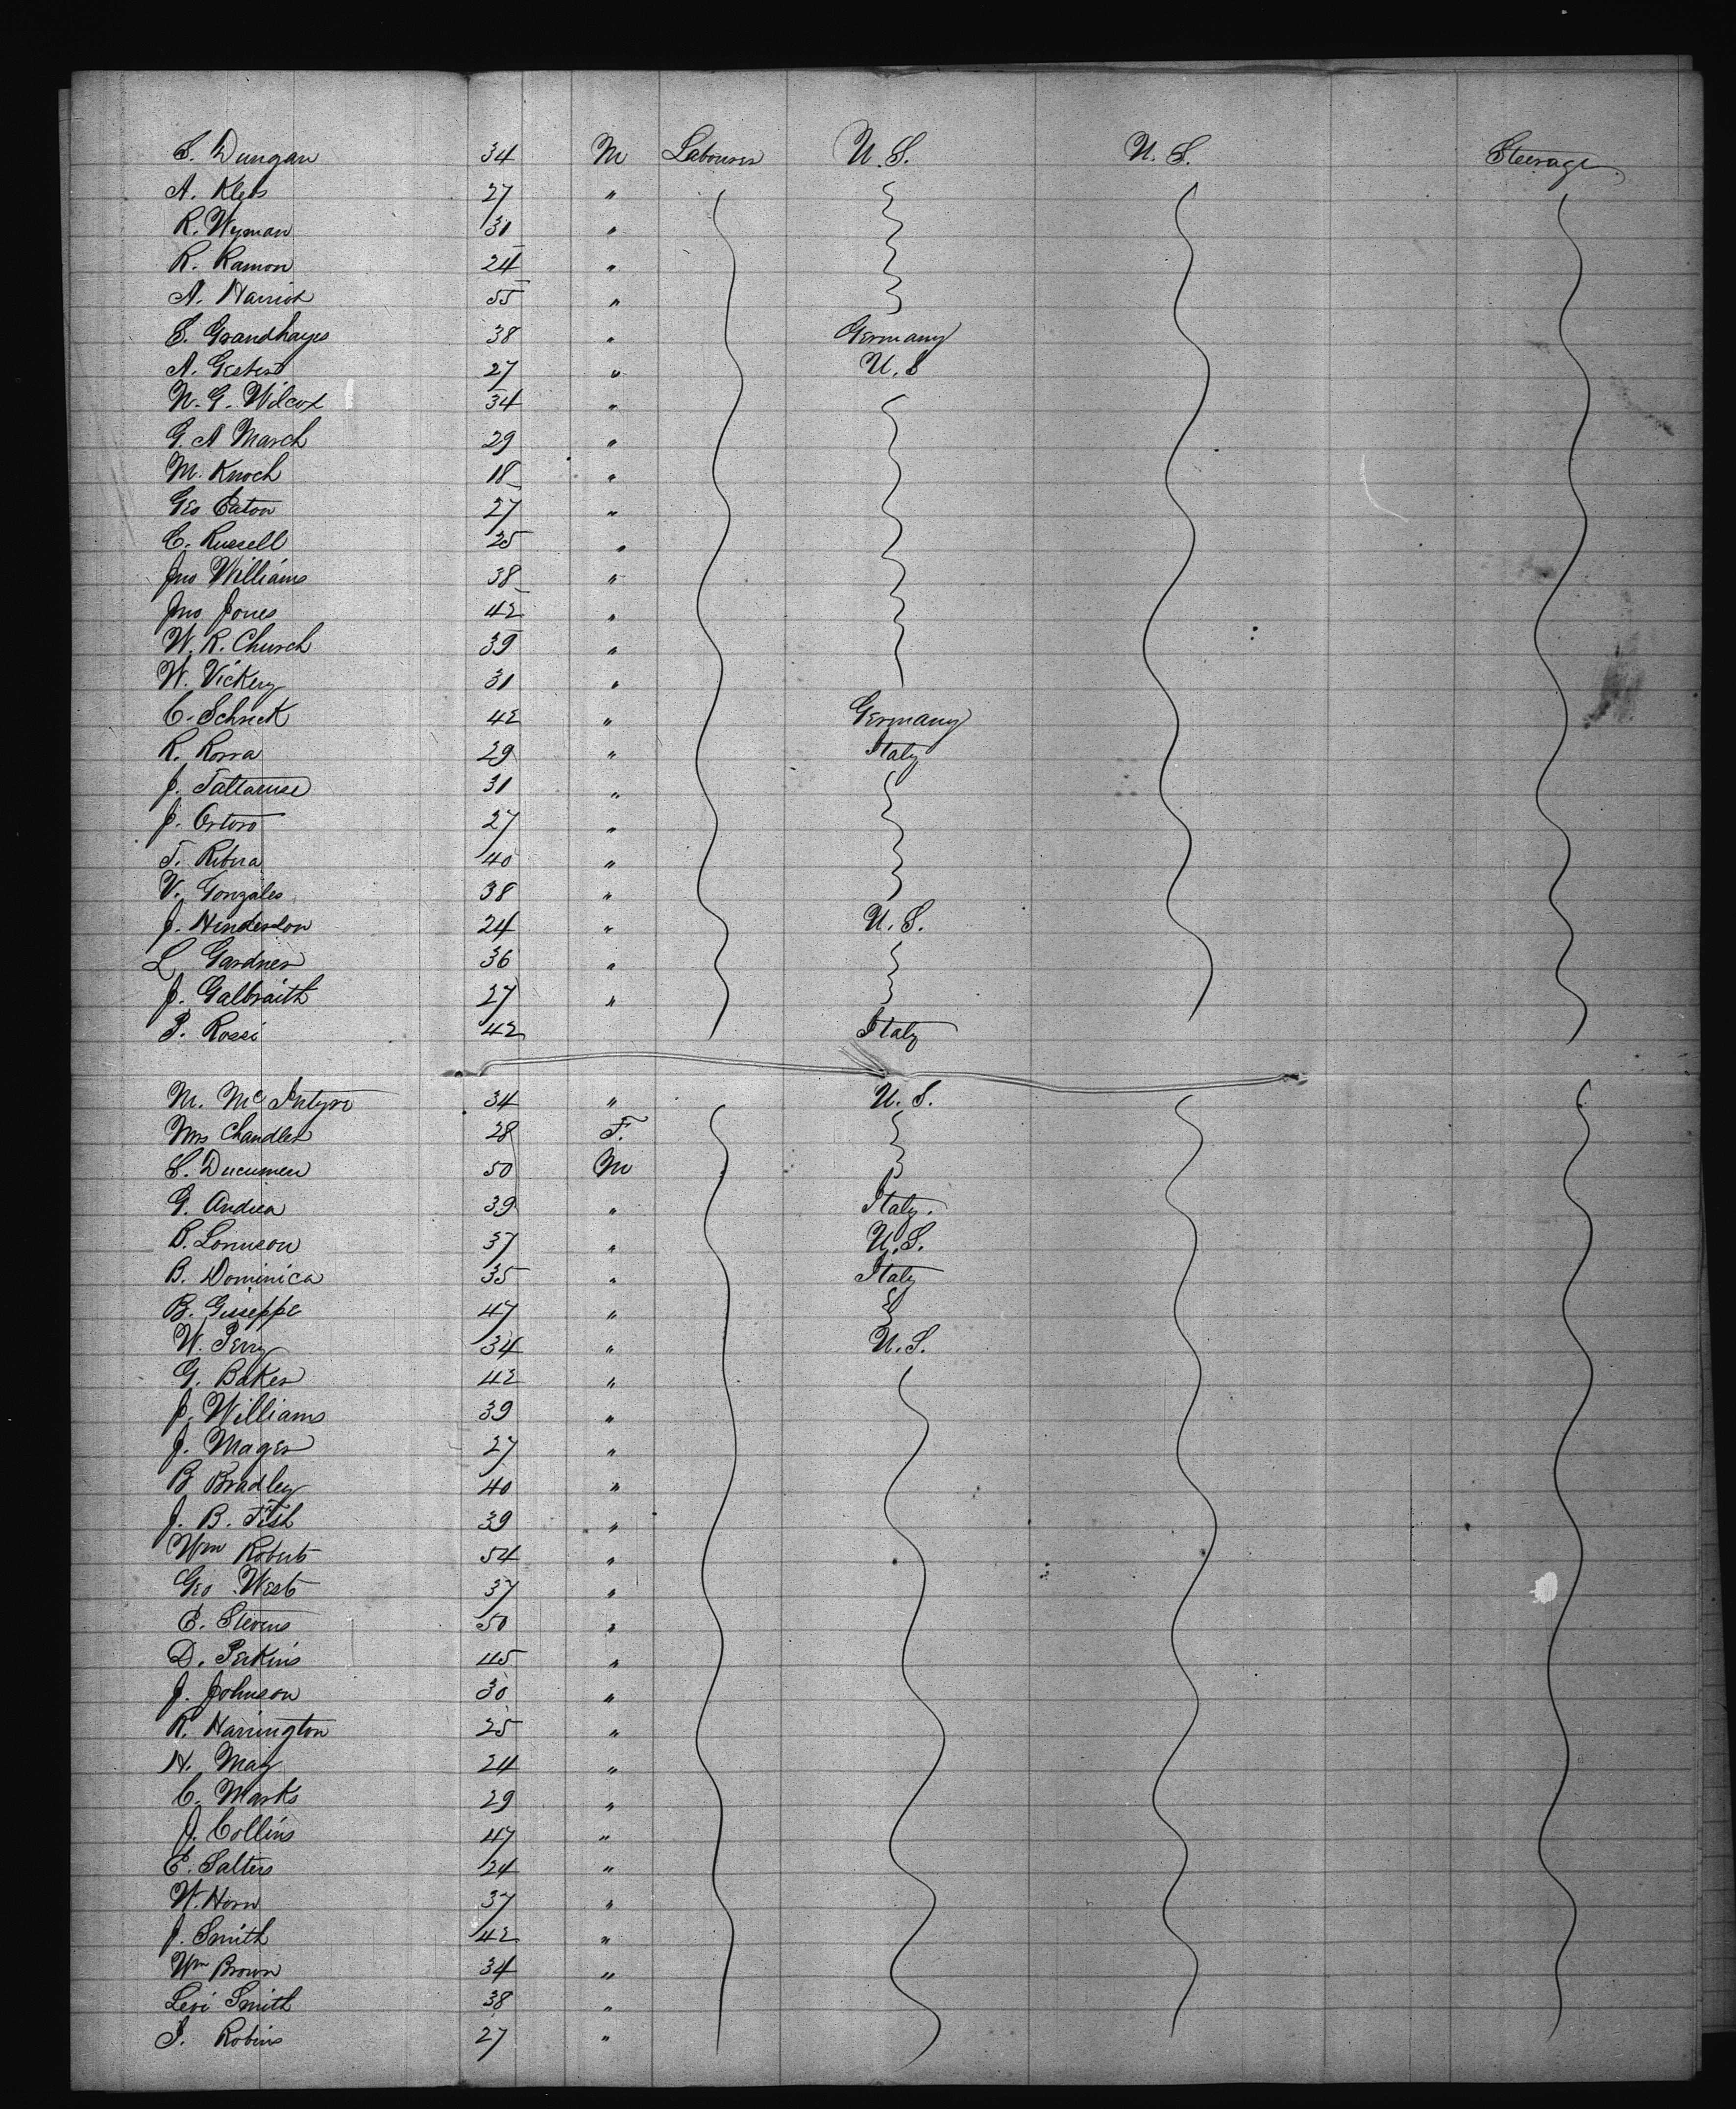 S. Dungan 34 M Labourer U.S. U.S. Steerage
A. Klebs 27 "
R. Wyman 30 "
R. Ramon 24 "
A. Harriot 55 "
S. Grandhayes 38 " Germany
A. 27 " U.S
N. G. Wilcox 34 "
G. A March 29 "
M. Knoch 18 "
Geo Eaton 27 "
C. Russell 25 "
Jno Williams 38 "
Jno Jones 42 "
W. R. Church 39 "
W. Vickery 31 "
C. Schrick 42 " Germany
R. Rorra 29 " Italy
J. 31 "
J. Ortoro 27 "
T. Ribera 40 "
V. Gonzales 38 "
J. Henderson 24 " U.S.
L Gardner 36 "
J. Galbraith 27 "
P. Rossi 42 Italy
M. McIntyre 34 " U.S.
Mrs Chandler 28 F.
S. 50 M
G. Andrea 39 " Italy.
B. 37 " U.S.
B. Dominica 35 " Italy
B. Giseppe 47 "
W. Perry 34 " U.S.
G. Baker 42 "
J. Williams 39 "
J. Mager 27 "
B Bradley 40 "
J. B. Fish 39 "
Wm Roberts 54 "
Geo West 37 "
E. Stevens 50 "
D. Perkins 45 "
J. Johnson 30 "
R. Harrington 25 "
H. May 24 "
C. Marks 29 "
J. Collins 47 "
E. Salters 24 "
W. Horn 37 "
J. Smith 42 "
Wm Brown 34 "
Levi Smith 38 "
J. Robins 27 "